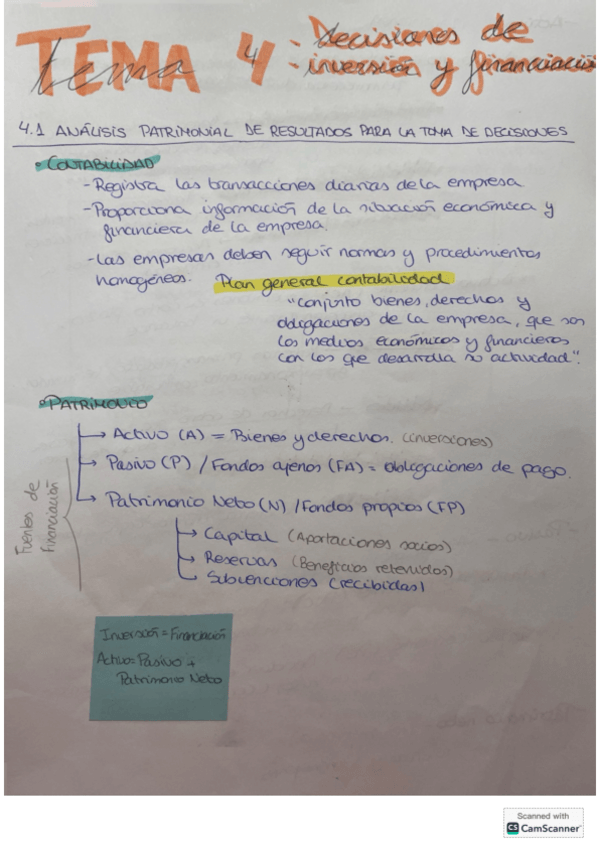 TEMA 4: Decisiones de
tema inversión y financiación
4.1 ANÁLISIS PATRIMONIAL DE RESULTADOS PARA LA TOMA DE DECISIONES
• CONTABILIDAD
- Registra las transacciones diarias de la empresa
- Proporciona información de la situación económica y
financiera de la empresa.
- Las empresas deben seguir normas y procedimientos
homogéneos. Plan general contabilidad
"Conjunto bienes, derechos y
obligaciones de la empresa, que son
los medios económicos y financieros
con los que desarrolla su actividad".
• PATRIMONIO
→ Activo (A) = Bienes y derechos. (inversiones)
→ Pasivo (P) / Fondos ajenos (FA) = obligaciones de pago.
→ Patrimonio Neto (N) / Fondos propios (FP)
Fuentes de
Financiación
→ Capital (Aportaciones socios)
→ Reservas (Beneficios retenidos)
→ Subvenciones (recibidas)
Inversión = Financiación
Activo = Pasivo +
Patrimonio Neto
Scanned with
CS CamScanner